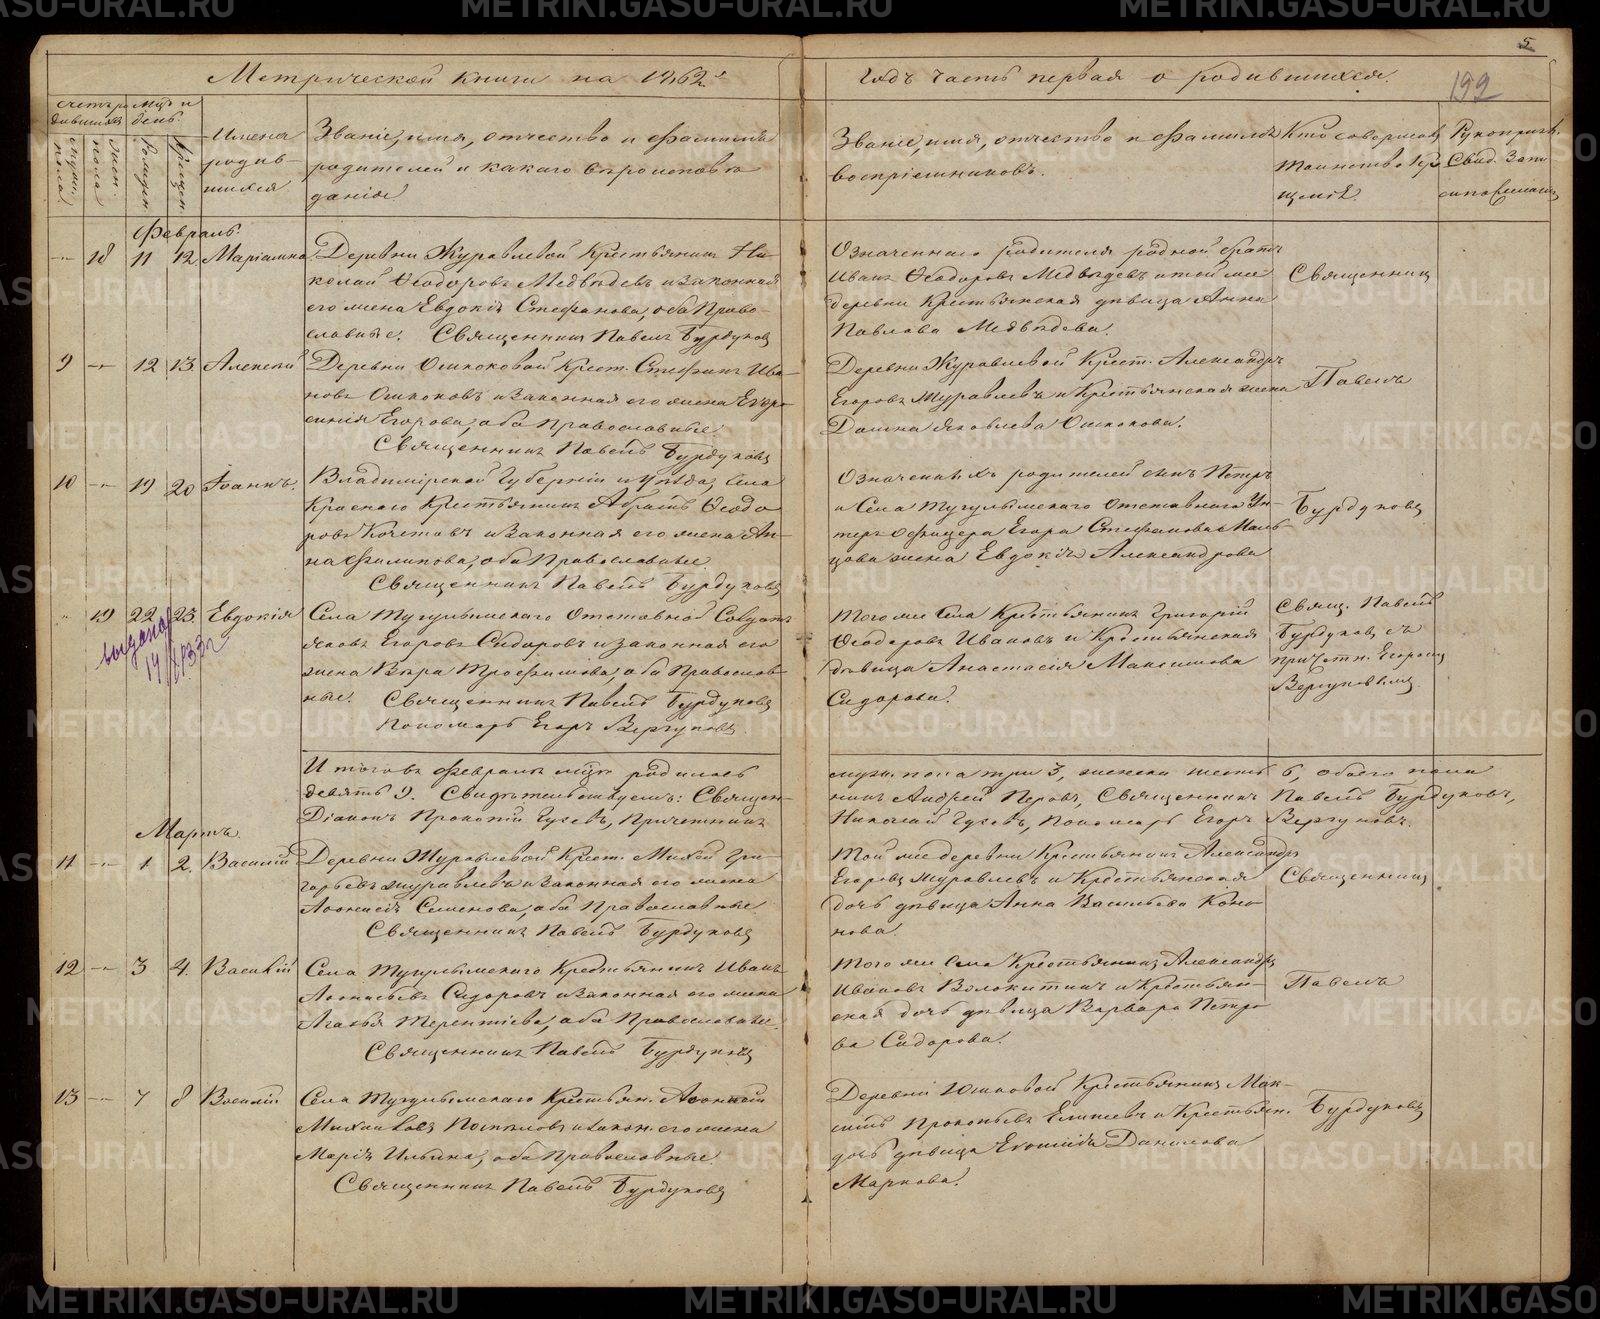 5
Метрической книги на 1862й
Годъ часть первая о родившихся.
199
Счетъ ро
дившихся
Мѣс. и
день
мужс. пола
женс. пола
рожден.
крещен.
Имена
родив-
шихся
Званіе, имя, отчество и фамилія
родителей и какого вѣроисповѣ
данія
Званіе, имя, отчество и фамилія
воспріемниковъ.
Кто совершалъ
таинство кре
щенія.
Рукоприк.
Свид. запи
си по желанію
Февраль.
18 11 12 Маріамна
Деревни Журавлевой Крестьянинъ Ни-
колай Ѳеодоровъ Медвѣдевъ и законная
его жена Евдокія Стефанова, оба Право-
славные. Священникъ Павелъ Бурдуковъ
Означеннаго родителя родной братъ
Иванъ Ѳеодоровъ Медвѣдевъ и той же
деревни Крестьянская дѣвица Анна
Павлова Медвѣдева.
Священникъ
9 12 13 Алексій
Деревни Ошкоковой Крест. Стефанъ Ива-
новъ Ошкоковъ и законная его жена Евфро
синія Егорова, оба Православные.
Священникъ Павелъ Бурдуковъ
Деревни Журавлевой Крест. Александръ
Егоровъ Журавлевъ и Крестьянская жена
Домна Яковлева Ошкокова.
Павелъ
10 19 20 Іоаннъ.
Владимірской Губерніи и уѣзда, Села
Краснаго Крестьянинъ Абрамъ Ѳеодо
ровъ Кочетовъ и законная его жена Ан-
на Филипова, оба Православные.
Священникъ Павелъ Бурдуковъ
Означенныхъ родителей сынъ Петръ
и Села Тугулымскаго Отставнаго Ун-
теръ Офицера Егора Стефанова Маль
цова жена Евдокія Александрова
Бурдуковъ
19 22 23 Евдокія
выдана
14/X 33 г
Села Тугулымскаго Отставной Солдатъ
Яковъ Егоровъ Сидоровъ и законная его
жена Вѣра Трофимова, оба Православ-
ные. Священникъ Павелъ Бурдуковъ
Пономарь Егоръ Вергуновъ.
Того же Села Крестьянинъ Григорій
Ѳеодоровъ Ивановъ и Крестьянская
дѣвица Анастасія Максимова
Сидорова.
Свящ. Павелъ
Бурдуковъ съ
причетн. Егоромъ
Вергуновымъ
Итого въ Февралѣ мѣсяцѣ родилось
девять 9. Свидѣтельствуемъ: Священ-
Діаконъ Прокопій Гусевъ, Причетникъ
муж. пола три 3, женска шесть 6, обоего пола
никъ Андрей Перовъ, Священникъ Павелъ Бурдуковъ,
Николай Гусевъ, Пономарь Егоръ Вергуновъ.
Мартъ
11 1 2 Василій
Деревни Журавлевой Крест. Михей Гри-
горьевъ Журавлевъ и законная его жена
Аѳанасія Семенова, оба Православные
Священникъ Павелъ Бурдуковъ
Той же деревни Крестьянинъ Александръ
Егоровъ Журавлевъ и Крестьянская
дочь дѣвица Анна Васильева Коно-
нова.
Священникъ
12 3 4 Василій
Села Тугулымскаго Крестьянинъ Иванъ
Аѳанасьевъ Сидоровъ и законная его жена
Агафья Терентіева, оба Православные.
Священникъ Павелъ Бурдуковъ
Того же Села Крестьянинъ Александръ
Ивановъ Волокитинъ и Крестьян-
ская дочь дѣвица Варвара Петро
ва Сидорова.
Павелъ
13 7 8 Василій
Села Тугулымскаго Крестьян. Аѳанасій
Михайловъ Поспѣловъ и закон. его жена
Марія Ильина, оба Православные.
Священникъ Павелъ Бурдуковъ
Деревни Юшковой Крестьянинъ Мак-
симъ Прокопьевъ Елисеевъ и Крестьян.
дочь дѣвица Евфимія Данилова
Маркова.
Бурдуковъ
METRIKI.GASO-URAL.RU